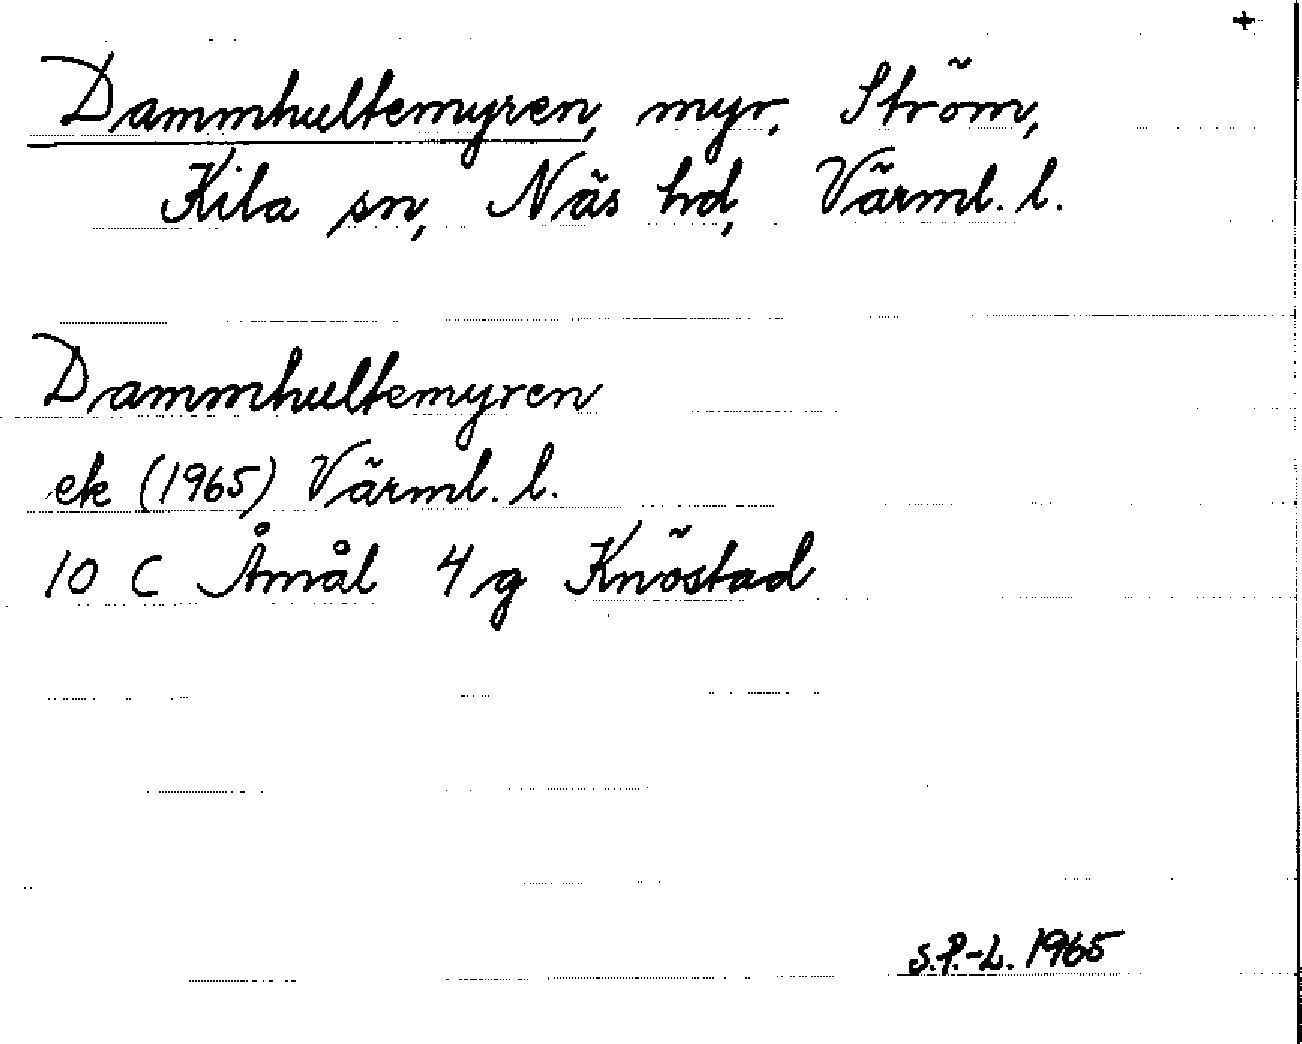 +
Dammhultemyren, myr, Ström,
Kila sn, Näs hd, Värml. l.
Dammhultemyren
ek (1965) Värml. l.
10 C Åmål 4 g Knöstad
S.P.-L. 1965